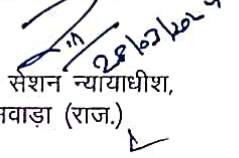 28/03/202
सेशन न्यायाधीश,
नवाड़ा (राज.)